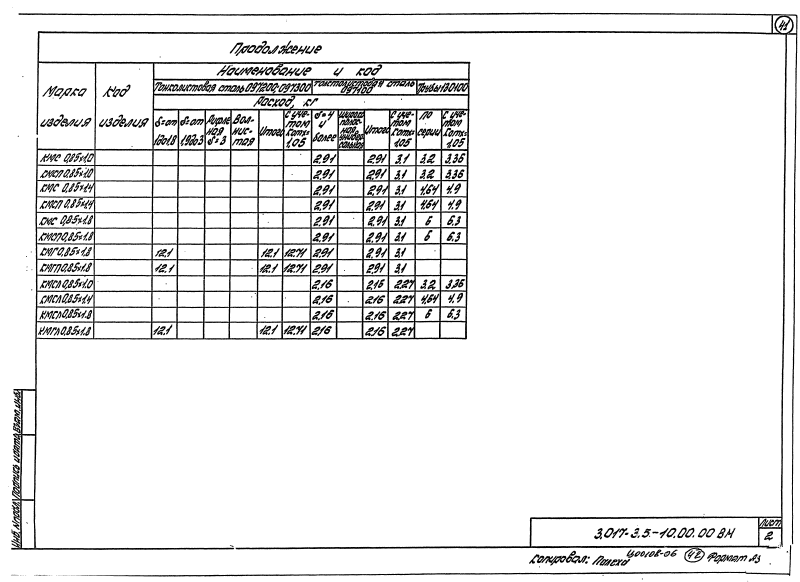 41
Продолжение
Марка изделия
Код изделия
Наименование и код
Тонколистовая сталь 097200; 097300
толстолистовая сталь 097100
Трубы 130100
Расход, кг
δ=от 1до1,8
δ=от 1,9до3
Рифле ная δ=3
Вол- нис- тая
Итого
С уче- том Котх= 1,05
δ=4 и более
широко полос- ная, универ- сальная
Итого
С уче- том Котх= 1,05
по серии
С уче- том Котх= 1,05
КМС 0,85×1,0 2,91 2,91 3,1 3,2 3,36
КМСП 0,85×1,0 2,91 2,91 3,1 3,2 3,36
КМС 0,85×1,4 2,91 2,91 3,1 4,64 4,9
КМСП 0,85×1,4 2,91 2,91 3,1 4,64 4,9
КМС 0,85×1,8 2,91 2,91 3,1 6 6,3
КМСП 0,85×1,8 2,91 2,91 3,1 6 6,3
КМГ 0,85×1,8 12,1 12,1 12,71 2,91 2,91 3,1
КМГП 0,85×1,8 12,1 12,1 12,71 2,91 2,91 3,1
КМСЛ 0,85×1,0 2,16 2,16 2,27 3,2 3,36
КМСЛ 0,85×1,4 2,16 2,16 2,27 4,64 4,9
КМСЛ 0,85×1,8 2,16 2,16 2,27 6 6,3
КМГЛ 0,85×1,8 12,1 12,1 12,71 2,16 2,16 2,27
Инв. №подл. Подпись и дата Взам. инв.№
3.017-3.5-10.00.00 ВМ
Лист
2
Копировал:
Ц00108-06 42 Формат А3